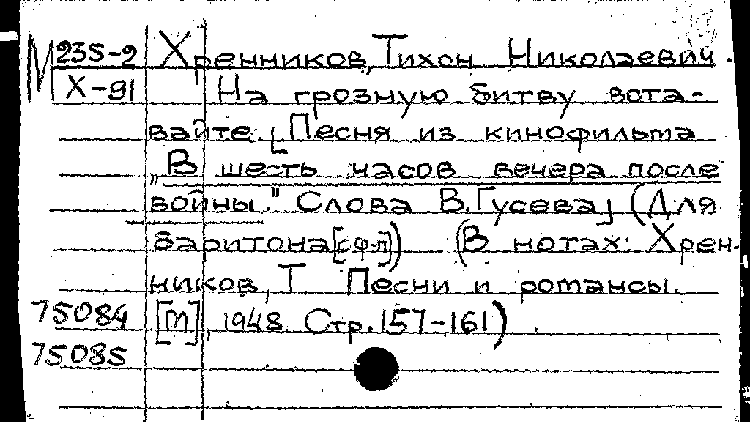 М 235-2 Хренников, Тихон Николаевич.
Х-91 На грозную битву вста-
вайте. [Песня из кинофильма
„В шесть часов вечера после
войны." Слова В. Гусева] (Для
баритона [с ф-п]) (В нотах: Хрен-
ников, Т Песни и романсы.
75084 [М], 1948. Стр. 157-161).
75085